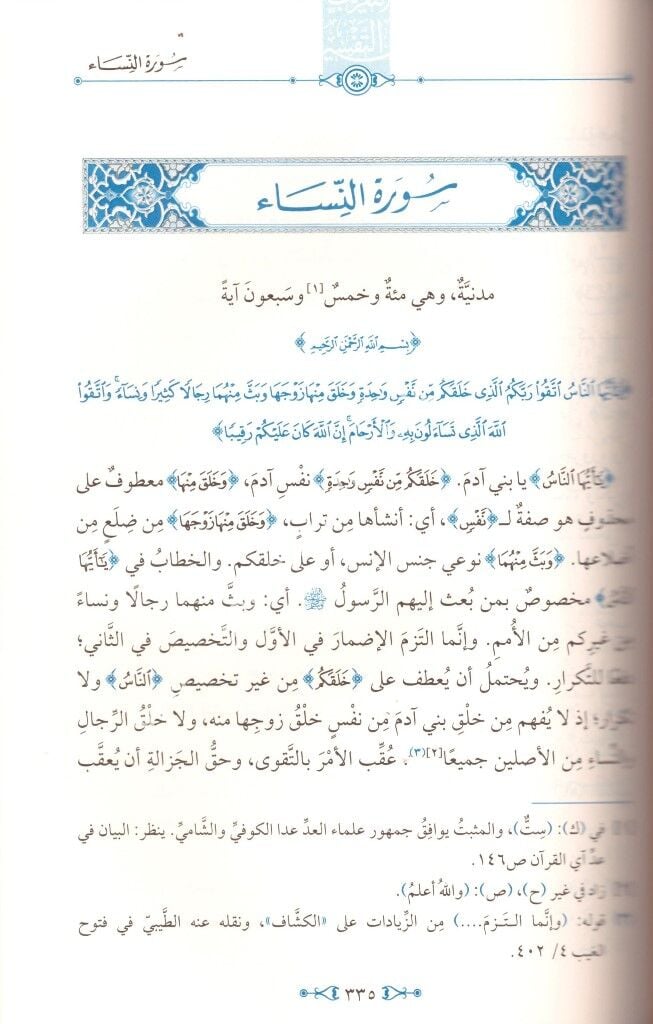 التفسير
سُورَةُ النِّسَاء
سُورَةُ النِّسَاء
مدنيَّةٌ، وهي مئةٌ وخمسٌ[١] وسَبعونَ آيةً
﴿بِسْمِ ٱللَّهِ ٱلرَّحْمَٰنِ ٱلرَّحِيمِ﴾
﴿يَٰٓأَيُّهَا ٱلنَّاسُ ٱتَّقُوا۟ رَبَّكُمُ ٱلَّذِى خَلَقَكُم مِّن نَّفْسٍ وَٰحِدَةٍ وَخَلَقَ مِنْهَا زَوْجَهَا وَبَثَّ مِنْهُمَا رِجَالًا كَثِيرًا وَنِسَآءً ۚ وَٱتَّقُوا۟
ٱللَّهَ ٱلَّذِى تَسَآءَلُونَ بِهِۦ وَٱلْأَرْحَامَ ۚ إِنَّ ٱللَّهَ كَانَ عَلَيْكُمْ رَقِيبًا﴾
﴿يَٰٓأَيُّهَا ٱلنَّاسُ﴾ يا بني آدمَ. ﴿خَلَقَكُم مِّن نَّفْسٍ وَٰحِدَةٍ﴾ نفْسِ آدمَ، ﴿وَخَلَقَ مِنْهَا﴾ معطوفٌ على
محذوفٍ هو صفةٌ لـ﴿نَّفْسٍ﴾، أي: أنشأها مِن ترابٍ، ﴿وَخَلَقَ مِنْهَا زَوْجَهَا﴾ مِن ضِلَعٍ مِن
أضلاعها. ﴿وَبَثَّ مِنْهُمَا﴾ نوعي جنس الإنس، أو على خلقكم. والخطابُ في ﴿يَٰٓأَيُّهَا
ٱلنَّاسُ﴾ مخصوصٌ بمن بُعث إليهم الرَّسولُ ﷺ. أي: وبثَّ منهما رجالًا ونساءً
مِن غيرِكم مِن الأُممِ. وإنَّما التَزمَ الإضمارَ في الأوَّل والتَّخصيصَ في الثَّاني؛
دفعًا للتَّكرارِ. ويُحتملُ أن يُعطف على ﴿خَلَقَكُم﴾ مِن غير تخصيصِ ﴿ٱلنَّاسُ﴾ ولا
تكرار؛ إذ لا يُفهم مِن خلْقِ بني آدمَ مِن نفْسٍ خلْقُ زوجِها منه، ولا خلْقُ الرِّجالِ
والنِّساءِ مِن الأصلين جميعًا[٢](٣). عُقِّب الأمْرَ بالتَّقوى، وحقُّ الجَزالةِ أن يُعقَّب
[١] في (ك): (سِتٌّ)، والمثبتُ يوافِقُ جمهور علماء العدِّ عدا الكوفيِّ والشَّاميِّ. ينظر: البيان في
عدِّ آي القرآن ص١٤٦.
[٢] زاد في غير (ح)، (ص): (واللهُ أعلمُ).
(٣) قوله: (وإنَّما التـزمَ....) مِن الزِّيادات على «الكشَّاف»، ونقله عنه الطِّيبيّ في فتوح
الغيب ٤/ ٤٠٢.
٣٣٥